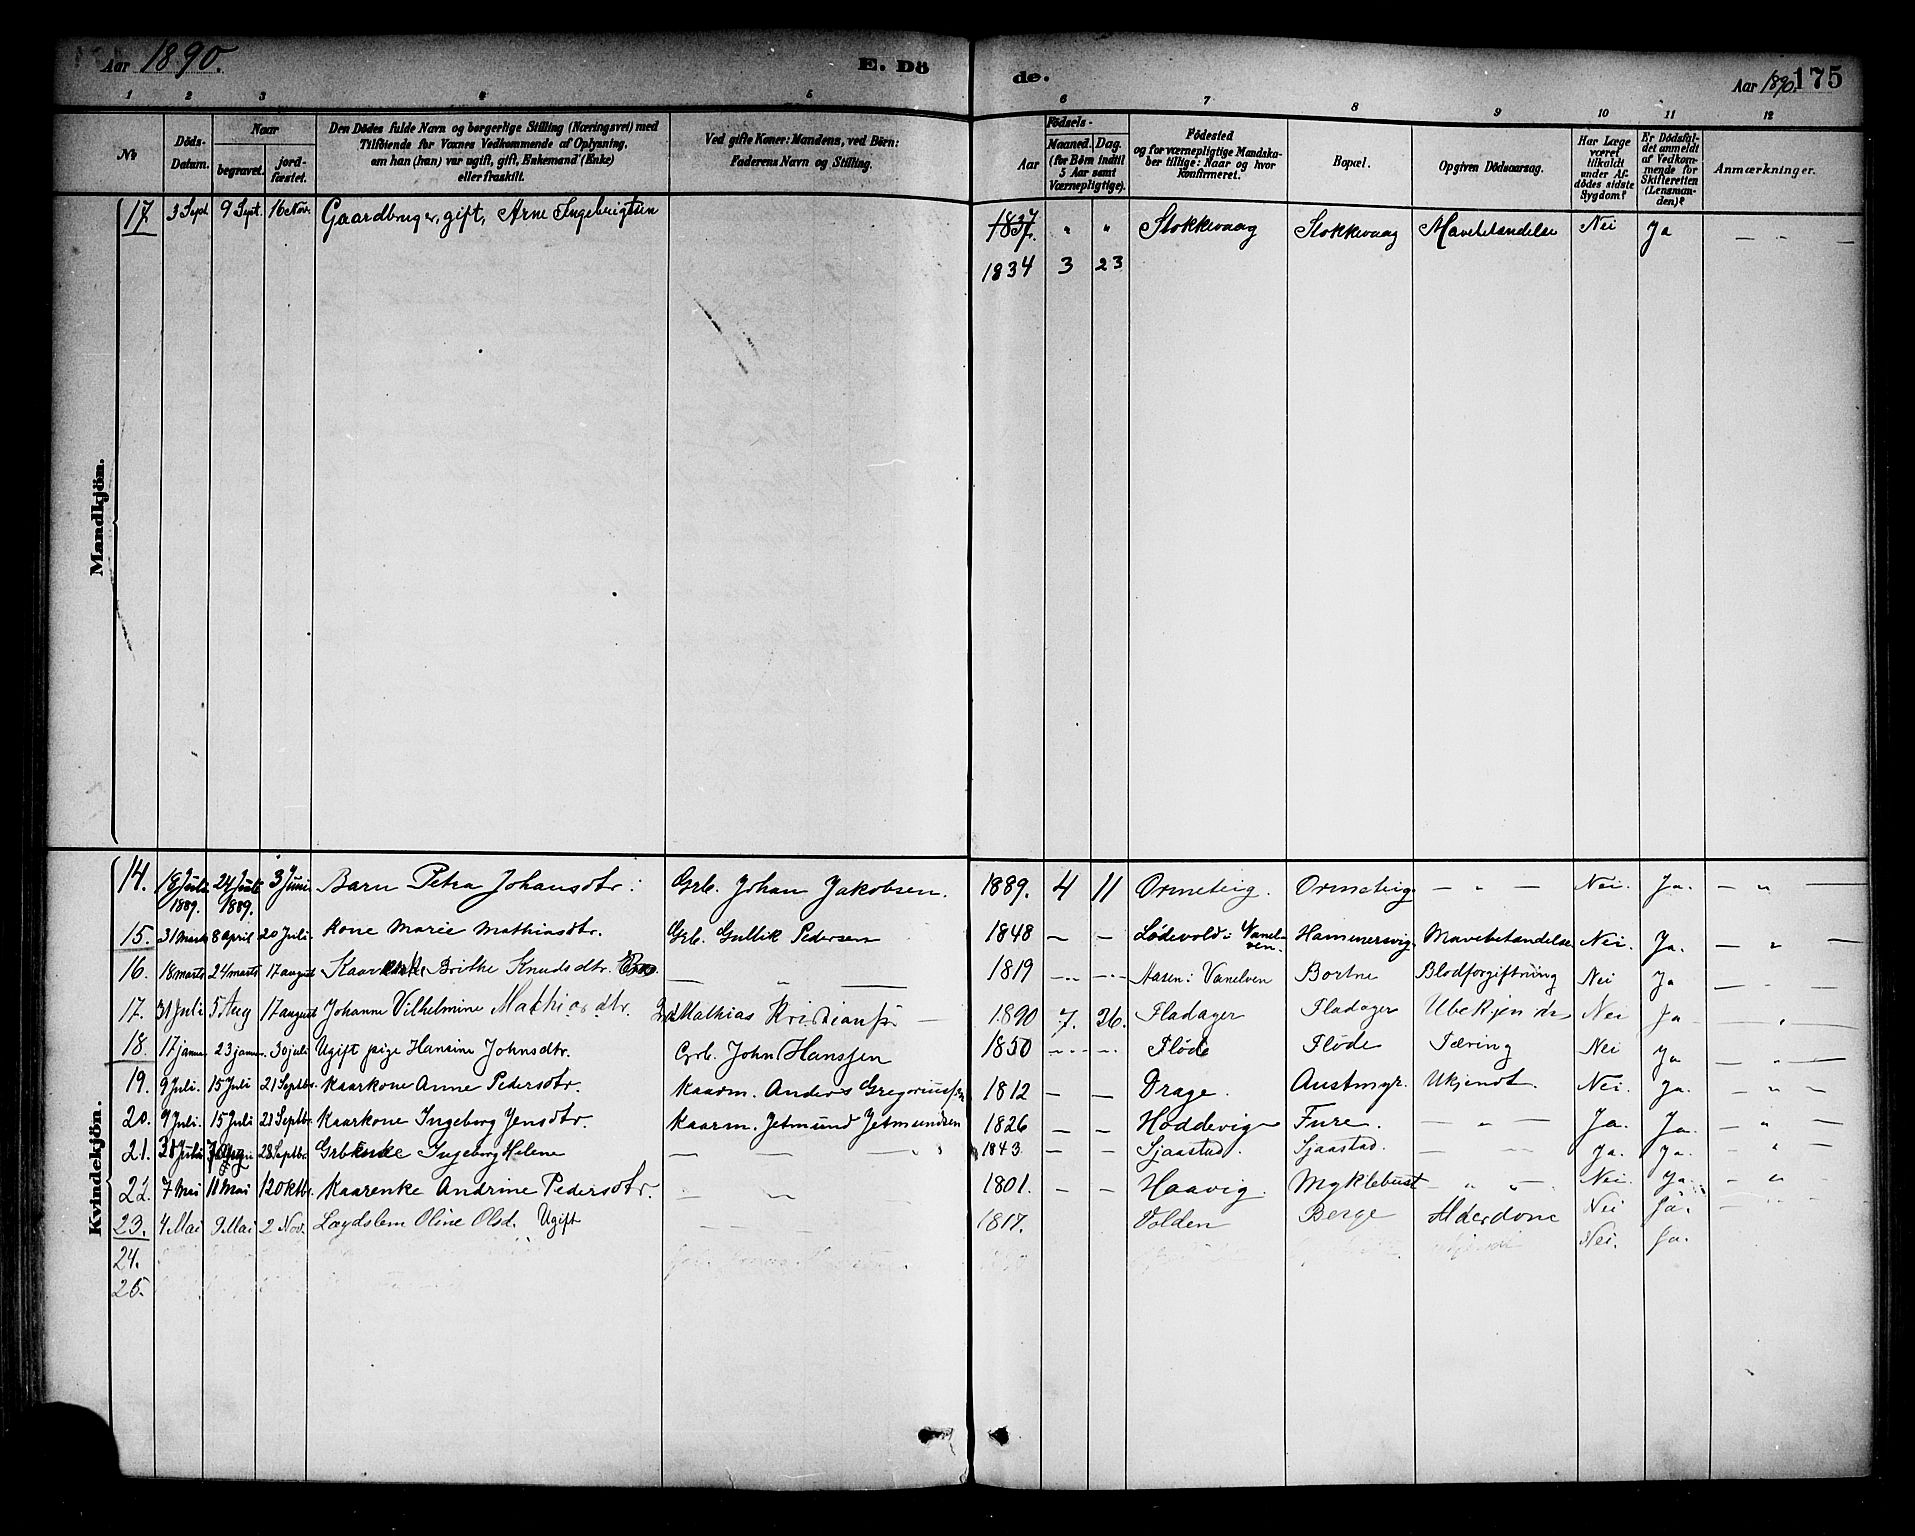 Aar 1890. E. Dö de. Aar 1890. 175
1 2 3 4 5 6 7 8 9 10 11 12
№
Döds-Datum.
Naar
begravet.
jord-fæstet.
Den Dödes fulde Navn og borgerlige Stilling (Næringsvei) med
Tilföiende for Voxnes Vedkommende af Oplysning,
om han (hun) var ugift, gift, Enkemand (Enke)
eller fraskilt.
Ved gifte Koner: Mandens, ved Börn:
Faderens Navn og Stilling.
Födsels-
Aar
Maaned. Dag.
(for Börn indtil
5 Aar samt
Værnepligtige).
Födested
og for værnepligtige Mandska-
ber tillige: Naar og hvor
konfirmeret.
Bopæl.
Opgiven Dödsaarsag.
Har Læge
været
tilkaldt
under Af-
dödes sidste
Sygdom?
Er Dödsfal-
det anmeldt
af Vedkom-
mende for
Skifteretten
(Lensman-
den)?
Anmærkninger.
Mandkjön.
17 3 Sept 9 Sept. 16 Nov. Gaardbruger, gift, Arne Ingebrigtsen 1837. " " Stokkevaag Stokkevaag Mavebetændelse Nei Ja — " —
1834 3 23
Kvindekjön.
14. 18 Juli 1889. 24 Juli 1889. 3 Juni Barn Petra Johansdtr. Grb. Johan Jakobsen. 1889. 4 11 Ormeteig. Ormeteig — " — Nei. Ja. — " —
15. 31 Marts 8 April 20 Juli. Kone Marie Mathiasdtr. Grb. Gullik Pedersen 1848 — — Lödevold i Vanelven. Hammersvig Mavebetændelse Nei. Ja. — " —
16. 18 marts 24 marts 17 august Kaarenke Brithe Knudsdtr. — " — 1819 — — Aasen i Vanelven Bortne Blodforgiftning Nei Ja — " —
17. 31 Juli 5 Aug 17 august Johanne Vilhelmine Mathiasdtr. Grb. Mathias Kristianss. 1890 7. 26. Fladager Fladager Ubekjendt Nei Ja — " —
18. 17 janua 23 janua. 30 juli Ugift pige Hansine Johnsdtr. Grb. John Hanssen 1850 — — Flöde Flöde Tæring Nei Ja — " —
19. 9 Juli. 15 Juli 21 Septbr. Kaarkone Anne Pedersdtr. Kaarm. Anders Gregoriussen 1812 — — Drage. Austmyr. Ukjendt. Nei. Ja. — " —
20. 9 Juli. 15 Juli 21 Septbr. Kaarkone Ingeborg Jensdtr. Kaarm. Jetmund Jetmundsen 1826 — — Hoddevig Fure. — " — Ja. Ja. — " —
21. 31 Juli 28 Septbr. Grbenke Ingeborg Helene — — — 1843 — — Sjaastad. Sjaastad. Ja. Ja. — "
22. 7 Mai 11 Mai 12 Oktbr. Kaarenke Andrine Pedersdtr. — " 1801. — — Haavig. Myklebust " " — Nei. Ja. — " —
23. 4 Mai 9 Mai 2 Nov. Lægdslem Oline Olsd. Ugift — — 1817. Volden Berge Alderdom Nei Ja.
24. Nei. Ja.
25.